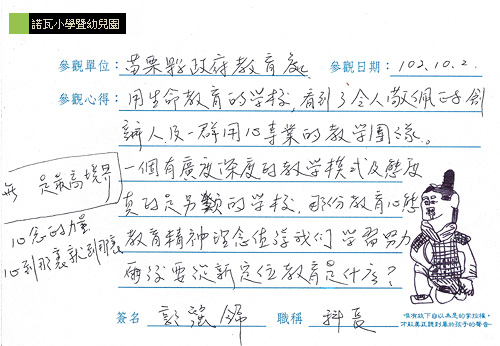 諾瓦小學暨幼兒園
參觀單位：苗栗縣政府教育處 參觀日期：102.10.2.
參觀心得：用生命教育的学校，看到了令人敬佩的創
辦人及一群用心專業的教学團隊。
一個有廣度深度的教学模式及態度
真的是另類的学校，那份教育心態
教育精神 值得我們学習努力
要從新定位教育是什么？
是最高境界
心念的力量
心到那裏就到那裏
簽名 職稱 科長
唯有放下自以為是的掌控權，
才能真正聽到屬於孩子的聲音